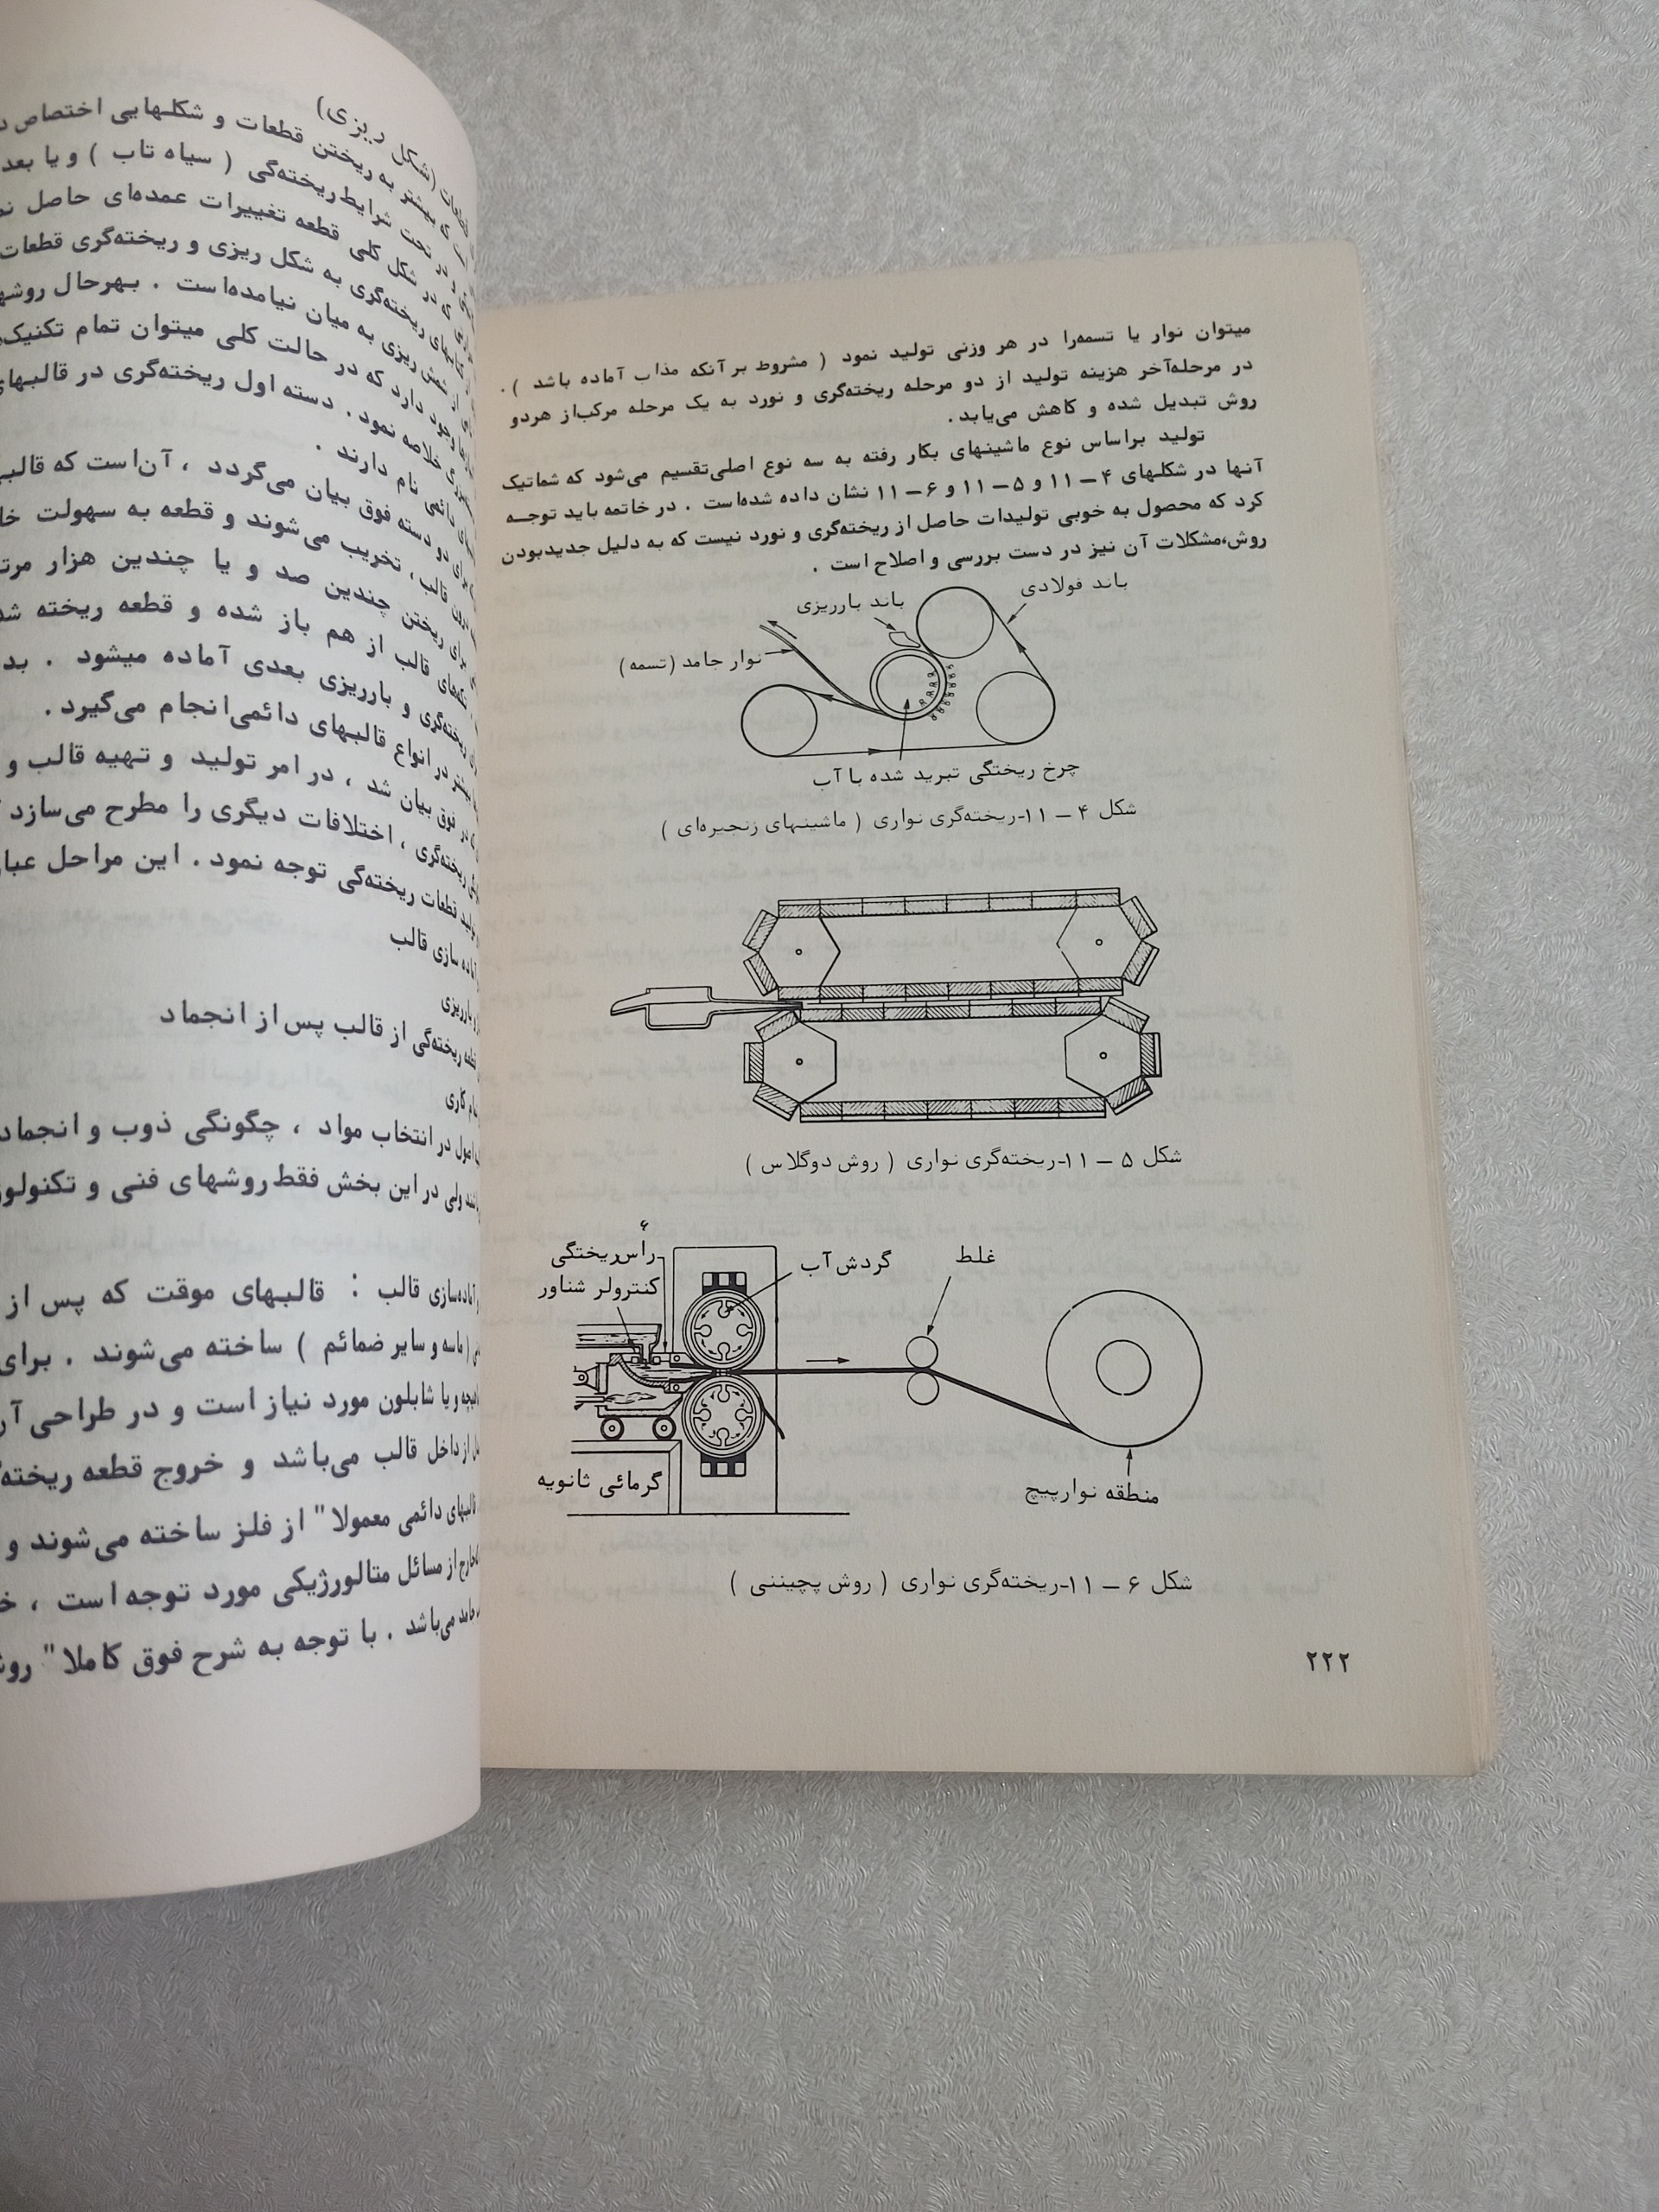 میتوان نوار یا تسمه‌را در هر وزنی تولید نمود ( مشروط بر آنکه مذاب آماده باشد ) .
در مرحله‌آخر هزینه تولید از دو مرحله ریخته‌گری و نورد به یک مرحله مرکب‌از هردو
روش تبدیل شده و کاهش می‌یابد .
تولید براساس نوع ماشینهای بکار رفته به سه نوع اصلی‌تقسیم می‌شود که شماتیک
آنها در شکلهای ۴ – ۱۱ و ۵ – ۱۱ و ۶ – ۱۱ نشان داده شده‌است . در خاتمه باید توجه
کرد که محصول به خوبی تولیدات حاصل از ریخته‌گری و نورد نیست که به دلیل جدیدبودن
روش،مشکلات آن نیز در دست بررسی و اصلاح است .
باند فولادی
باند بارریزی
نوار جامد (تسمه)
چرخ ریختگی تبرید شده با آب
شکل ۴ – ۱۱-ریخته‌گری نواری ( ماشینهای زنجیره‌ای )
شکل ۵ – ۱۱-ریخته‌گری نواری ( روش دوگلاس )
غلط
گردش آب
رأس‌ریختگی
کنترولر شناور
گرمائی ثانویه
منطقه نوارپیچ
شکل ۶ – ۱۱-ریخته‌گری نواری ( روش پچیننی )
۲۲۲
(شکل ریزی)
که بیشتر به ریختن قطعات و شکلهایی اختصاص
در تحت شرایط ریخته‌گی ( سیاه تاب ) و یا بعد
که در شکل کلی قطعه تغییرات عمده‌ای حاصل
ریخته‌گری به شکل ریزی و ریخته‌گری قطعات
از شمش ریزی به میان نیامده‌است . بهرحال
وجود دارد که در حالت کلی میتوان تمام تکنیک
خلاصه نمود . دسته اول ریخته‌گری در
دائمی نام دارند .
دو دسته فوق بیان می‌گردد ، آن‌است که
قالب ، تخریب می‌شوند و قطعه به سهولت
برای ریختن چندین صد و یا چندین هزار
قالب از هم باز شده و قطعه ریخته
ریخته‌گری و بارریزی بعدی آماده میشود .
در انواع قالبهای دائمی‌انجام می‌گیرد .
در فوق بیان شد ، در امر تولید و تهیه قالب و
ریخته‌گری ، اختلافات دیگری را مطرح می‌سازد
تولید قطعات ریخته‌گی توجه نمود . این مراحل
آماده سازی قالب
بارریزی
ریخته‌گی از قالب پس‌از انجماد
کاری
اصول در انتخاب مواد ، چگونگی ذوب و انجماد
ولی در این بخش فقط روشهای فنی و
آماده‌سازی قالب : قالبهای موقت که پس از
( ماسه و سایر ضمائم ) ساخته می‌شوند . برای
و یا شابلون مورد نیاز است و در طراحی
از داخل قالب می‌باشد و خروج قطعه
قالبهای دائمی معمولا" از فلز ساخته می‌شوند و
خارج از مسائل متالورژیکی مورد توجه است ،
می‌باشد . با توجه به شرح فوق کاملا"